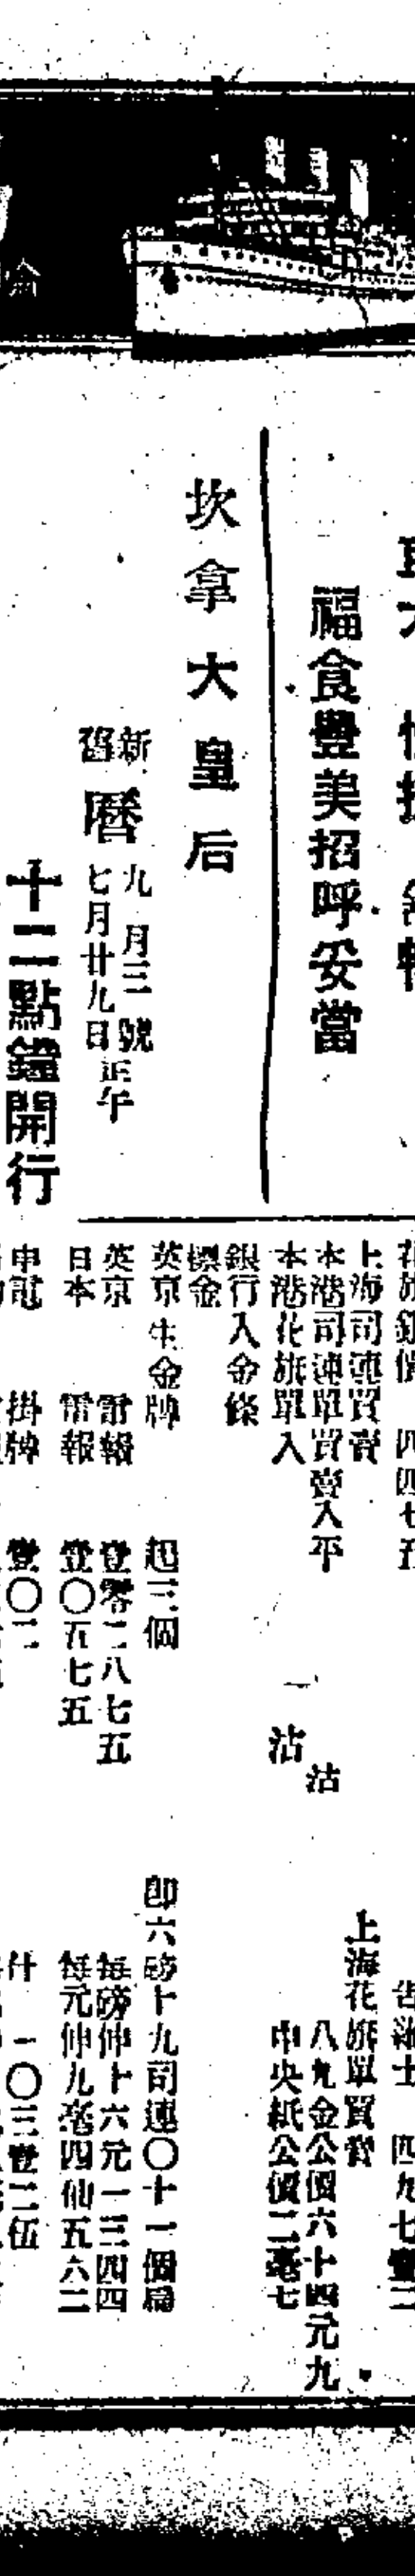 福食豐美招呼妥當
坎拿大皇后
新舊曆
九月三號
七月廿九日
正午
十二點鐘開行
四四七五
上海司連買賣
本港司連單買賣入平 沽
本港花旗單入 一沽
銀行入金條
標金
英京生金牌 起三個
英京 電報 壹零二八七五
日本 電報 壹〇五七五
申電 掛牌 壹〇二
上海花旗單買賣
八九金公價六十四元九
中央紙公價二毫七
即六磅十九司連〇十一個扁
每磅伸十六元一三四四
每元伸九毫四仙五六二
什 一〇三壹二伍